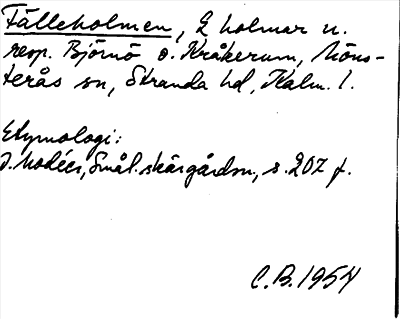 Fälleholmen, 2 holmar n.
resp. Björnö o. Kråkerum, Möns-
terås sn, Stranda hd, Kalm. l.
Etymologi:
J. Modéer, Smål. skärgårdsn, s. 207 f.
C.B. 1954